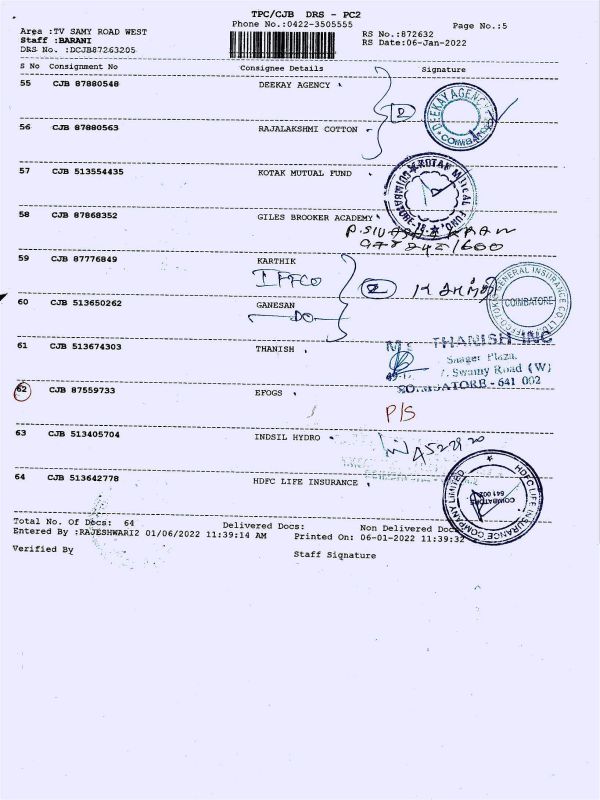 TPC/CJB DRS - PC2
Phone No.:0422-3505555
Page No.:5
Area :TV SAMY ROAD WEST
Staff :BARANI
DRS No. :DCJB87263205
RS No.:872632
RS Date:06-Jan-2022
S No Consignment No Consignee Details Signature
55 CJB 87880548 DEEKAY AGENCY
DEEKAY AGENCY
2
56 CJB 87880563 RAJALAKSHMI COTTON
57 CJB 513554435 KOTAK MUTUAL FUND
58 CJB 87868352 GILES BROOKER ACADEMY
59 CJB 87776849 KARTHIK
IFFCO
2
COIMBATORE
60 CJB 513650262 GANESAN
DO
61 CJB 513674303 THANISH
THANISH INC
Plaza,
Swamy Road (W)
COIMBATORE - 641 002
62 CJB 87559733 EFOGS
P/S
63 CJB 513405704 INDSIL HYDRO
64 CJB 513642778 HDFC LIFE INSURANCE
HDFC LIFE INSURANCE COMPANY LIMITED
COIMBATORE
641 002
Total No. Of Docs: 64 Delivered Docs: Non Delivered Docs
Entered By :RAJESHWARI2 01/06/2022 11:39:14 AM Printed On: 06-01-2022 11:39:32
Verified By Staff Signature